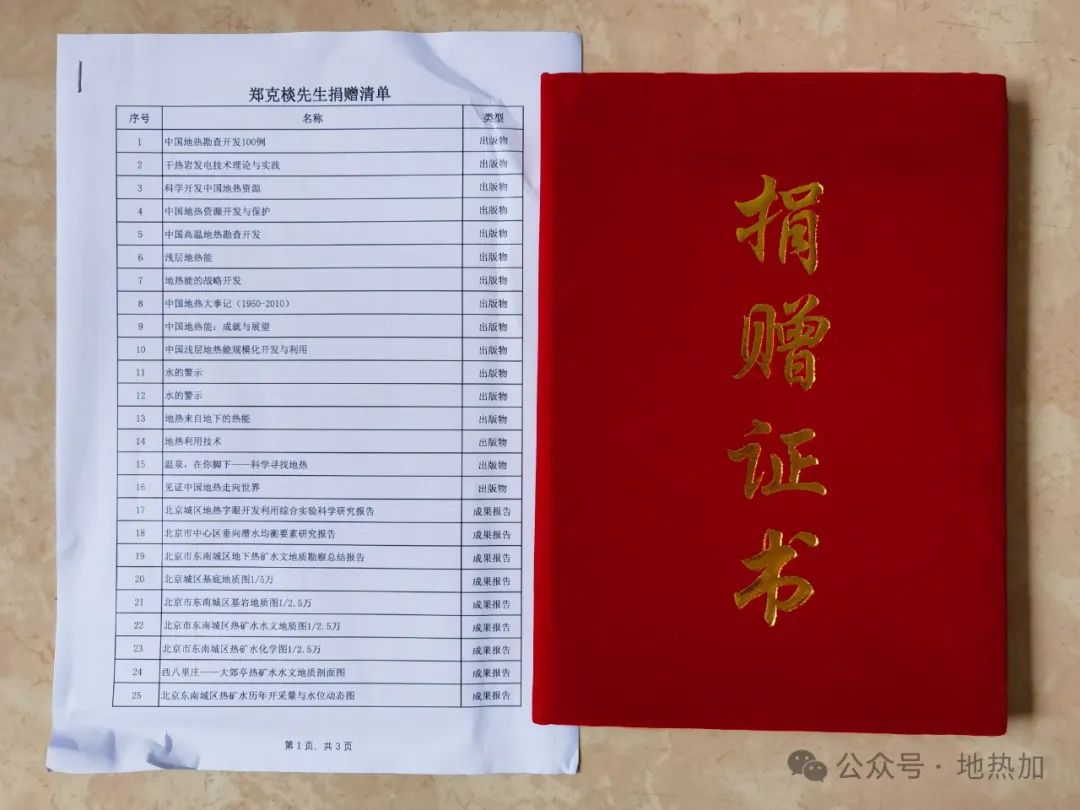 郑克棪先生捐赠清单
序号 名称 类型
1 中国地热勘查开发100例 出版物
2 干热岩发电技术理论与实践 出版物
3 科学开发中国地热资源 出版物
4 中国地热资源开发与保护 出版物
5 中国高温地热勘查开发 出版物
6 浅层地热能 出版物
7 地热能的战略开发 出版物
8 中国地热大事记（1950-2010） 出版物
9 中国地热能：成就与展望 出版物
10 中国浅层地热能规模化开发与利用 出版物
11 水的警示 出版物
12 水的警示 出版物
13 地热来自地下的热能 出版物
14 地热利用技术 出版物
15 温泉，在你脚下——科学寻找地热 出版物
16 见证中国地热走向世界 出版物
17 北京城区地热字眼开发利用综合实验科学研究报告 成果报告
18 北京市中心区垂向潜水均衡要素研究报告 成果报告
19 北京市东南城区地下热矿水文地质勘察总结报告 成果报告
20 北京城区基底地质图1/5万 成果报告
21 北京市东南城区基岩地质图1/2.5万 成果报告
22 北京市东南城区热矿水水文地质图1/2.5万 成果报告
23 北京市东南城区热矿水化学图1/2.5万 成果报告
24 西八里庄——大郊亭热矿水水文地质剖面图 成果报告
25 北京东南城区热矿水历年开采量与水位动态图 成果报告
第 1 页，共 3 页
捐赠证书
公众号 · 地热加